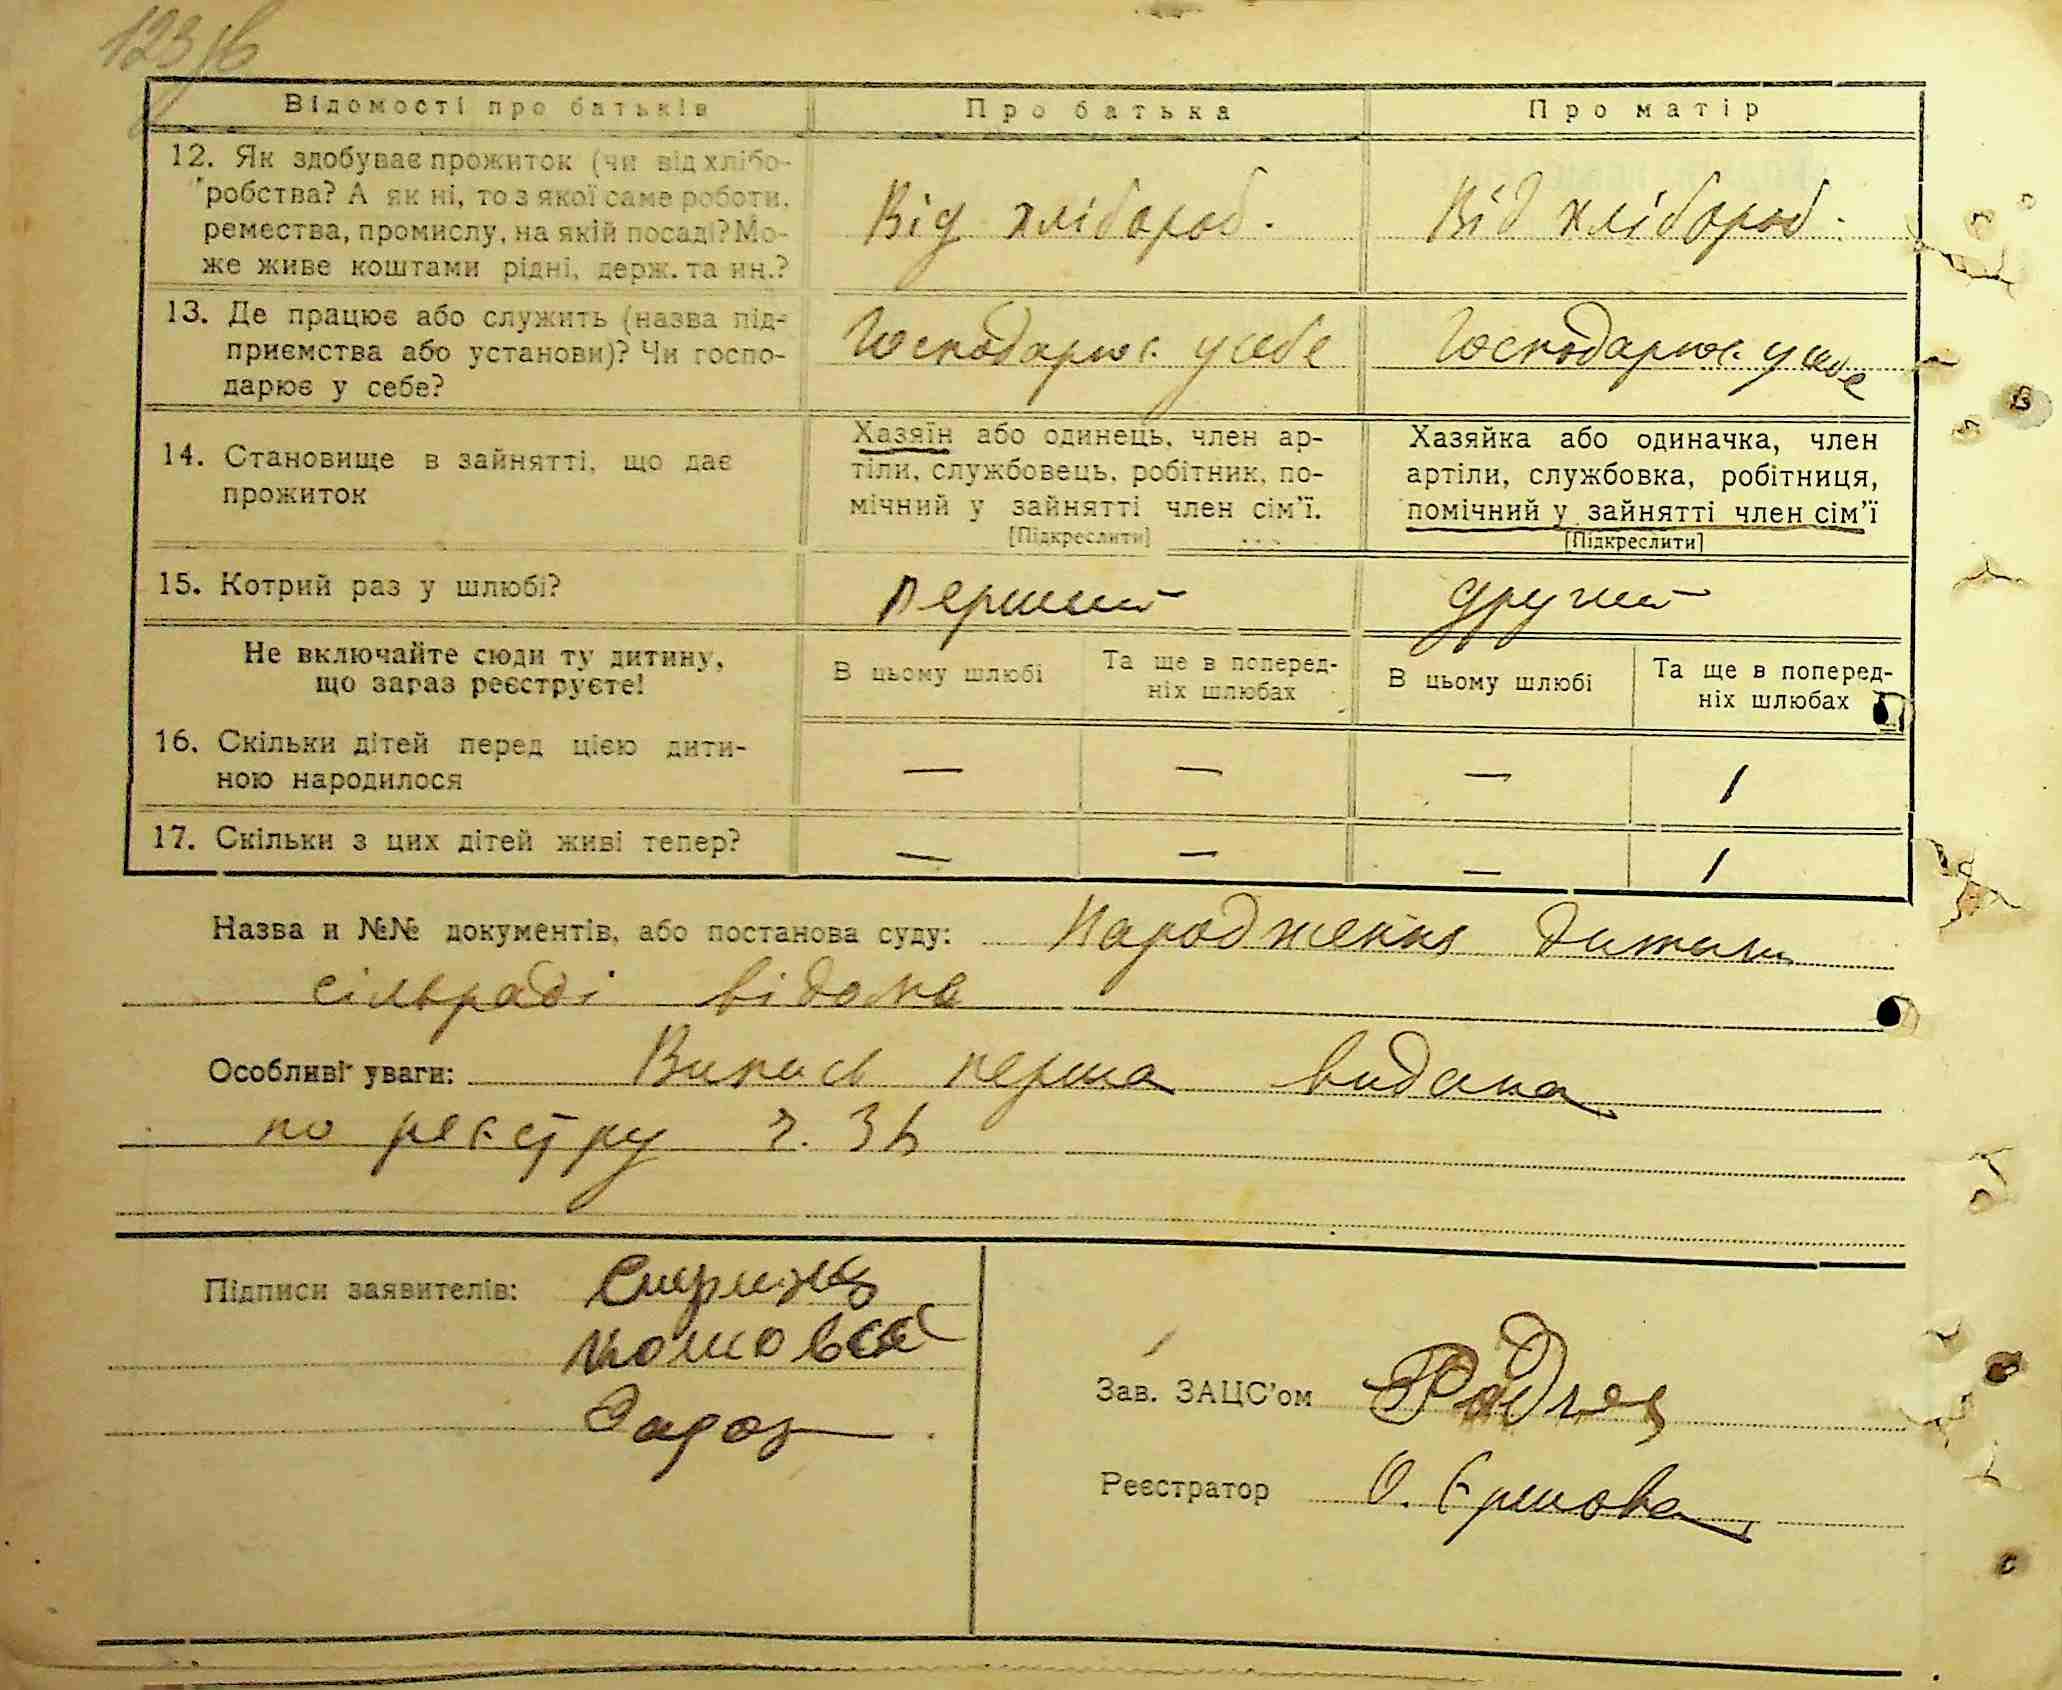 Відомості про батьків Про батька Про матір
12. Як здобуває прожиток (чи від хлібо-
робства? А як ні, то з якої саме роботи,
ремества, промислу, на якій посаді? Мо-
же живе коштами рідні, держ. та ин.?
Від хлібороб. Від хлібороб.
13. Де працює або служить (назва під-
приємства або установи)? Чи госпо-
дарює у себе?
Господарює у себе Господарює у себе
14. Становище в зайнятті, що дає
прожиток
Хазяїн або одинець, член ар-
тіли, службовець, робітник, по-
мічний у зайнятті член сім'ї.
[Підкреслити]
Хазяйка або одиначка, член
артіли, службовка, робітниця,
помічний у зайнятті член сім'ї
[Підкреслити]
15. Котрий раз у шлюбі? перший другий
Не включайте сюди ту дитину,
що зараз реєструєте!
В цьому шлюбі
Та ще в поперед-
ніх шлюбах
В цьому шлюбі
Та ще в поперед-
ніх шлюбах
16. Скільки дітей перед цією дити-
ною народилося
— — — 1
17. Скільки з цих дітей живі тепер? — — — 1
Назва и №№ документів, або постанова суду: Народження дитини
сільраді відоме
Особливі уваги: Випись перша видана
по реєстру ч.
Підписи заявителів:
Зав. ЗАЦС'ом
Реєстратор О. Єршова